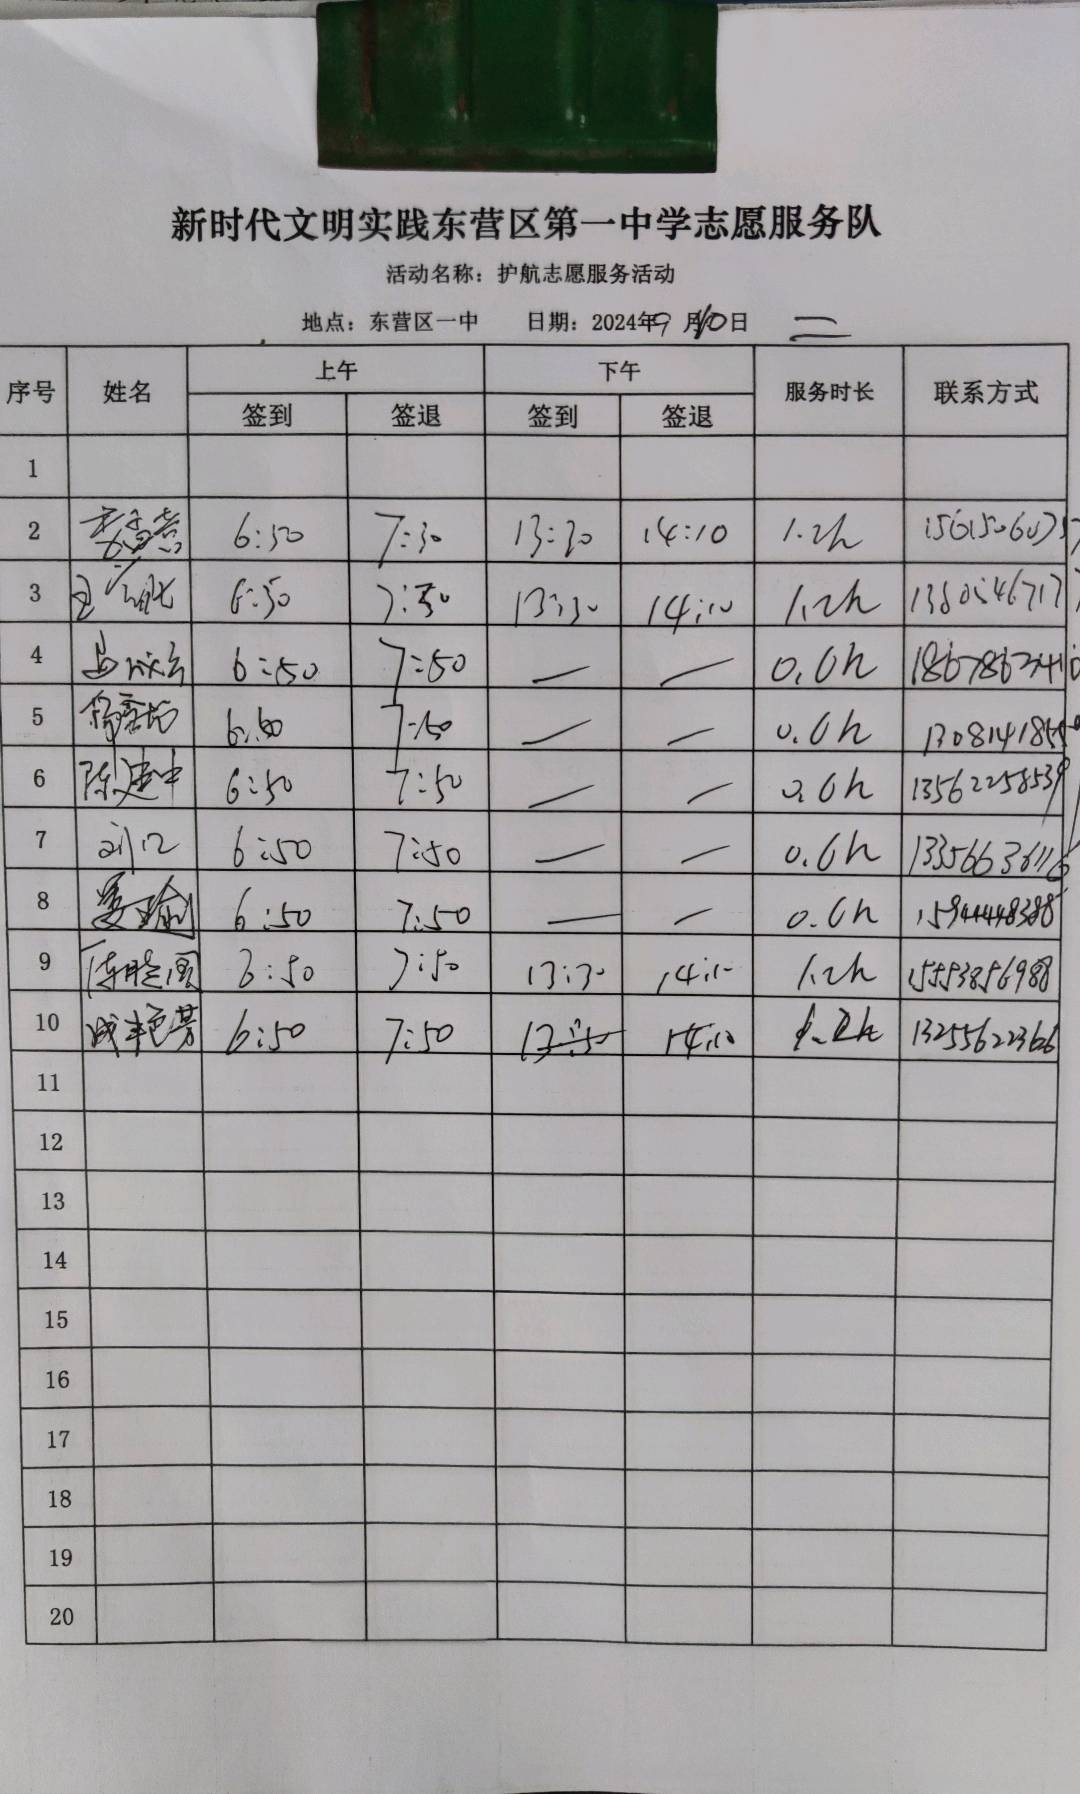 新时代文明实践东营区第一中学志愿服务队
活动名称：护航志愿服务活动
地点：东营区一中 日期：2024年9月10日 二
序号 姓名 上午 下午 服务时长 联系方式
签到 签退 签到 签退
1
2 6:50 7:30 13:30 14:10 1.2h
3 6:50 7:50 13:30 14:10 1.2h
4 6:50 7:50 — — 0.6h
5 6:50 7:50 — — 0.6h
6 陈建中 6:50 7:50 — — 0.6h 13562258539
7 刘江 6:50 7:50 — — 0.6h 13356636116
8 6:50 7:50 — — 0.6h 15944448388
9 6:50 7:50 13:30 14:10 1.2h 15553856988
10 6:50 7:50 14:10 1.2h 13255622366
11
12
13
14
15
16
17
18
19
20